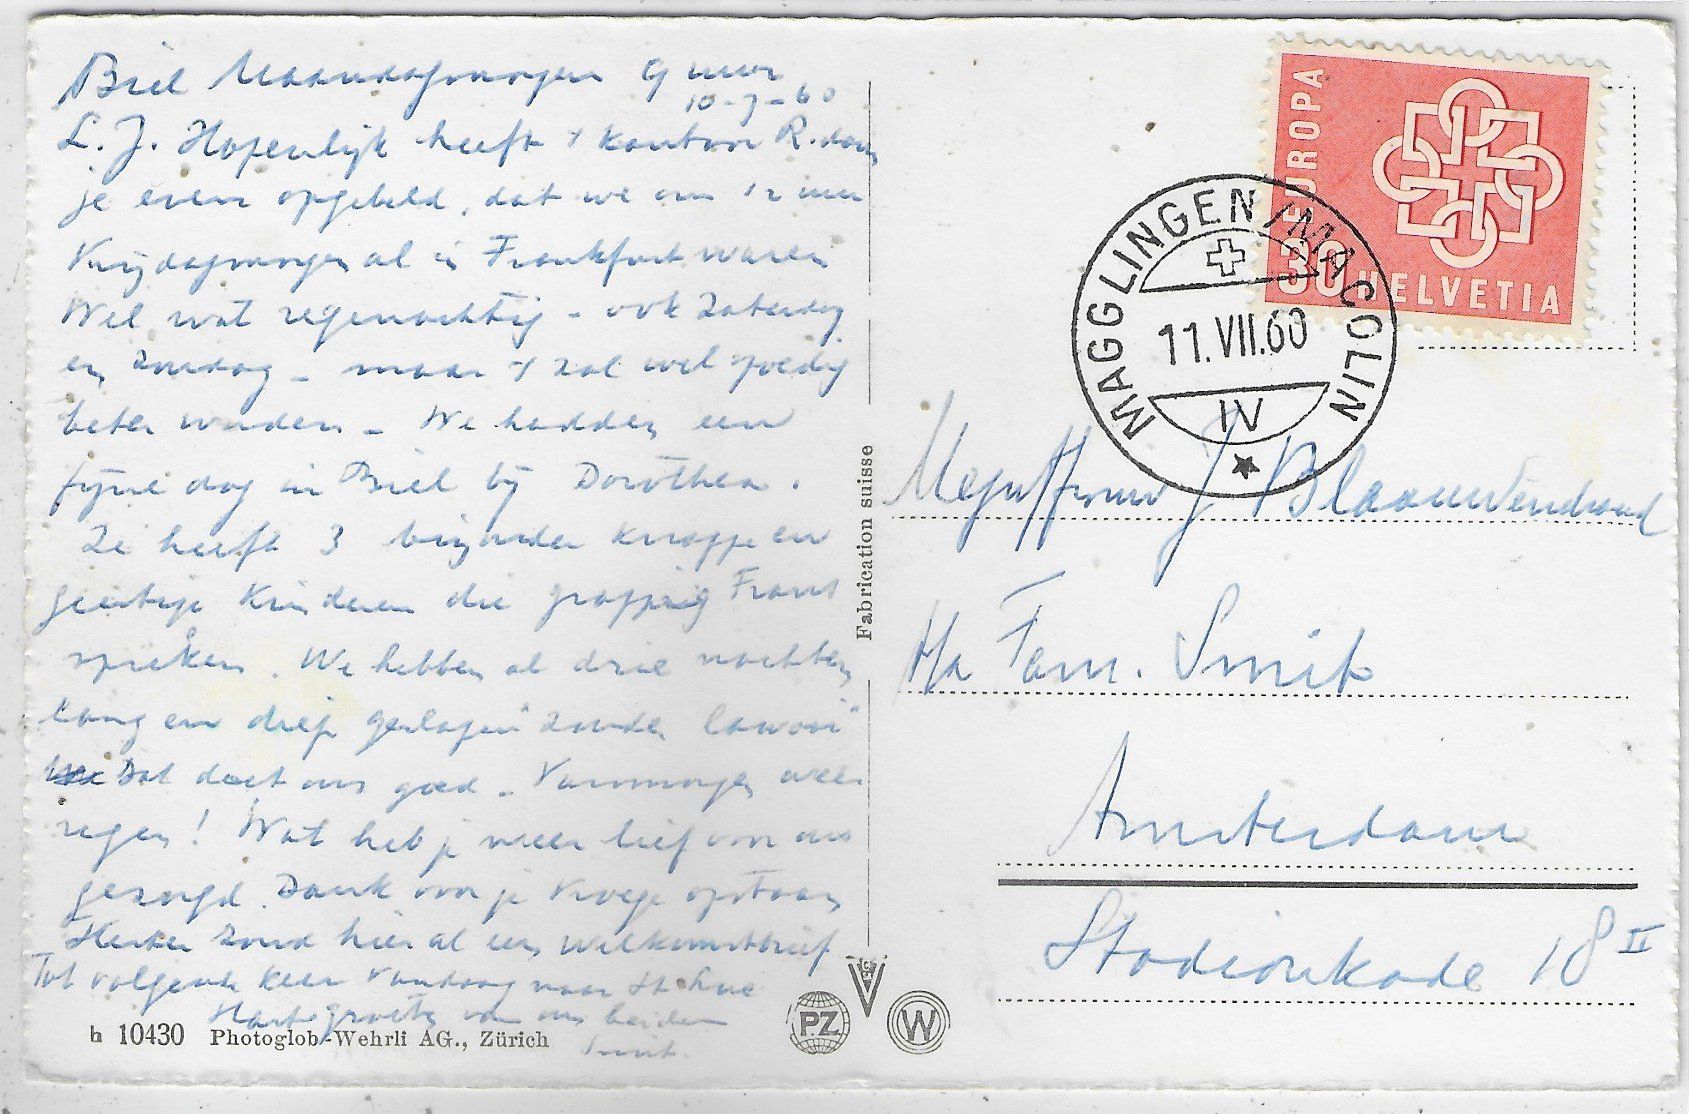 Biel Maandagmorgen 9 uur
10-7-60
L. J. Hopenlijk heeft 't kantoor R.dam
je even opgebeld, dat we om 12 uur
Vrijdagmorgen al in Frankfort waren
Wel wat regenachtig - ook Zaterdag
en Zondag - maar 't zal wel spoedig
beter worden - We hadden een
fijne dag in Biel bij Dorothea.
Ze heeft 3 bijzonder knappe en
geestige kinderen die grappig Frans
spreken. We hebben al drie nachten
lang en diep geslapen "zonder lawaai"
Dat doet ons goed - Vanmorgen weer
regen! Wat heb je weer lief voor ons
gezorgd. Dank voor je vroege opstaan
zond hier al een welkomstbrief
Tot volgende keer Vandaag naar St. Luc
Hart. groeten van ons beiden
Smit.
h 10430 Photoglob-Wehrli AG., Zürich
Fabrication suisse
PZ
W
EUROPA
30 HELVETIA
MAGGLINGEN/MACOLIN
11.VII.60
IV
Mejuffrouw J Blaauwendraad
p/a Fam. Smit
Amsterdam
Stadionkade 18 II